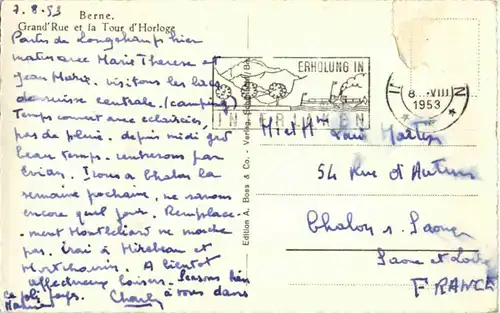 7.8.53
Berne.
Grand'Rue et la Tour d'Horloge
Partis de Longchamp hier
matin avec Marie Therese et
Jean Marie. Visitons les lacs
de suisse centrale. (camping)
Temps couvert avec eclaircies,
pas de pluie. depuis midi
beau temps. rentrerons par
Evian. Irons a Chalon la
semaine prochaine, ne savons
encore quel jour. Remplace-
-ment Montbeliard ne marche
pas. irai à Mirebeau et
Montchanin. A bientot
affectueux baisers. Pensons bien
à vous dans
ce joli pays. Charly
Edition A. Boss & Co. - Verlag
ERHOLUNG IN
INTERLAKEN
8 VIII
1953
Mr et Mme
54 Rue d'Autun
Chalon s. Saone
Saone et Loire
FRANCE